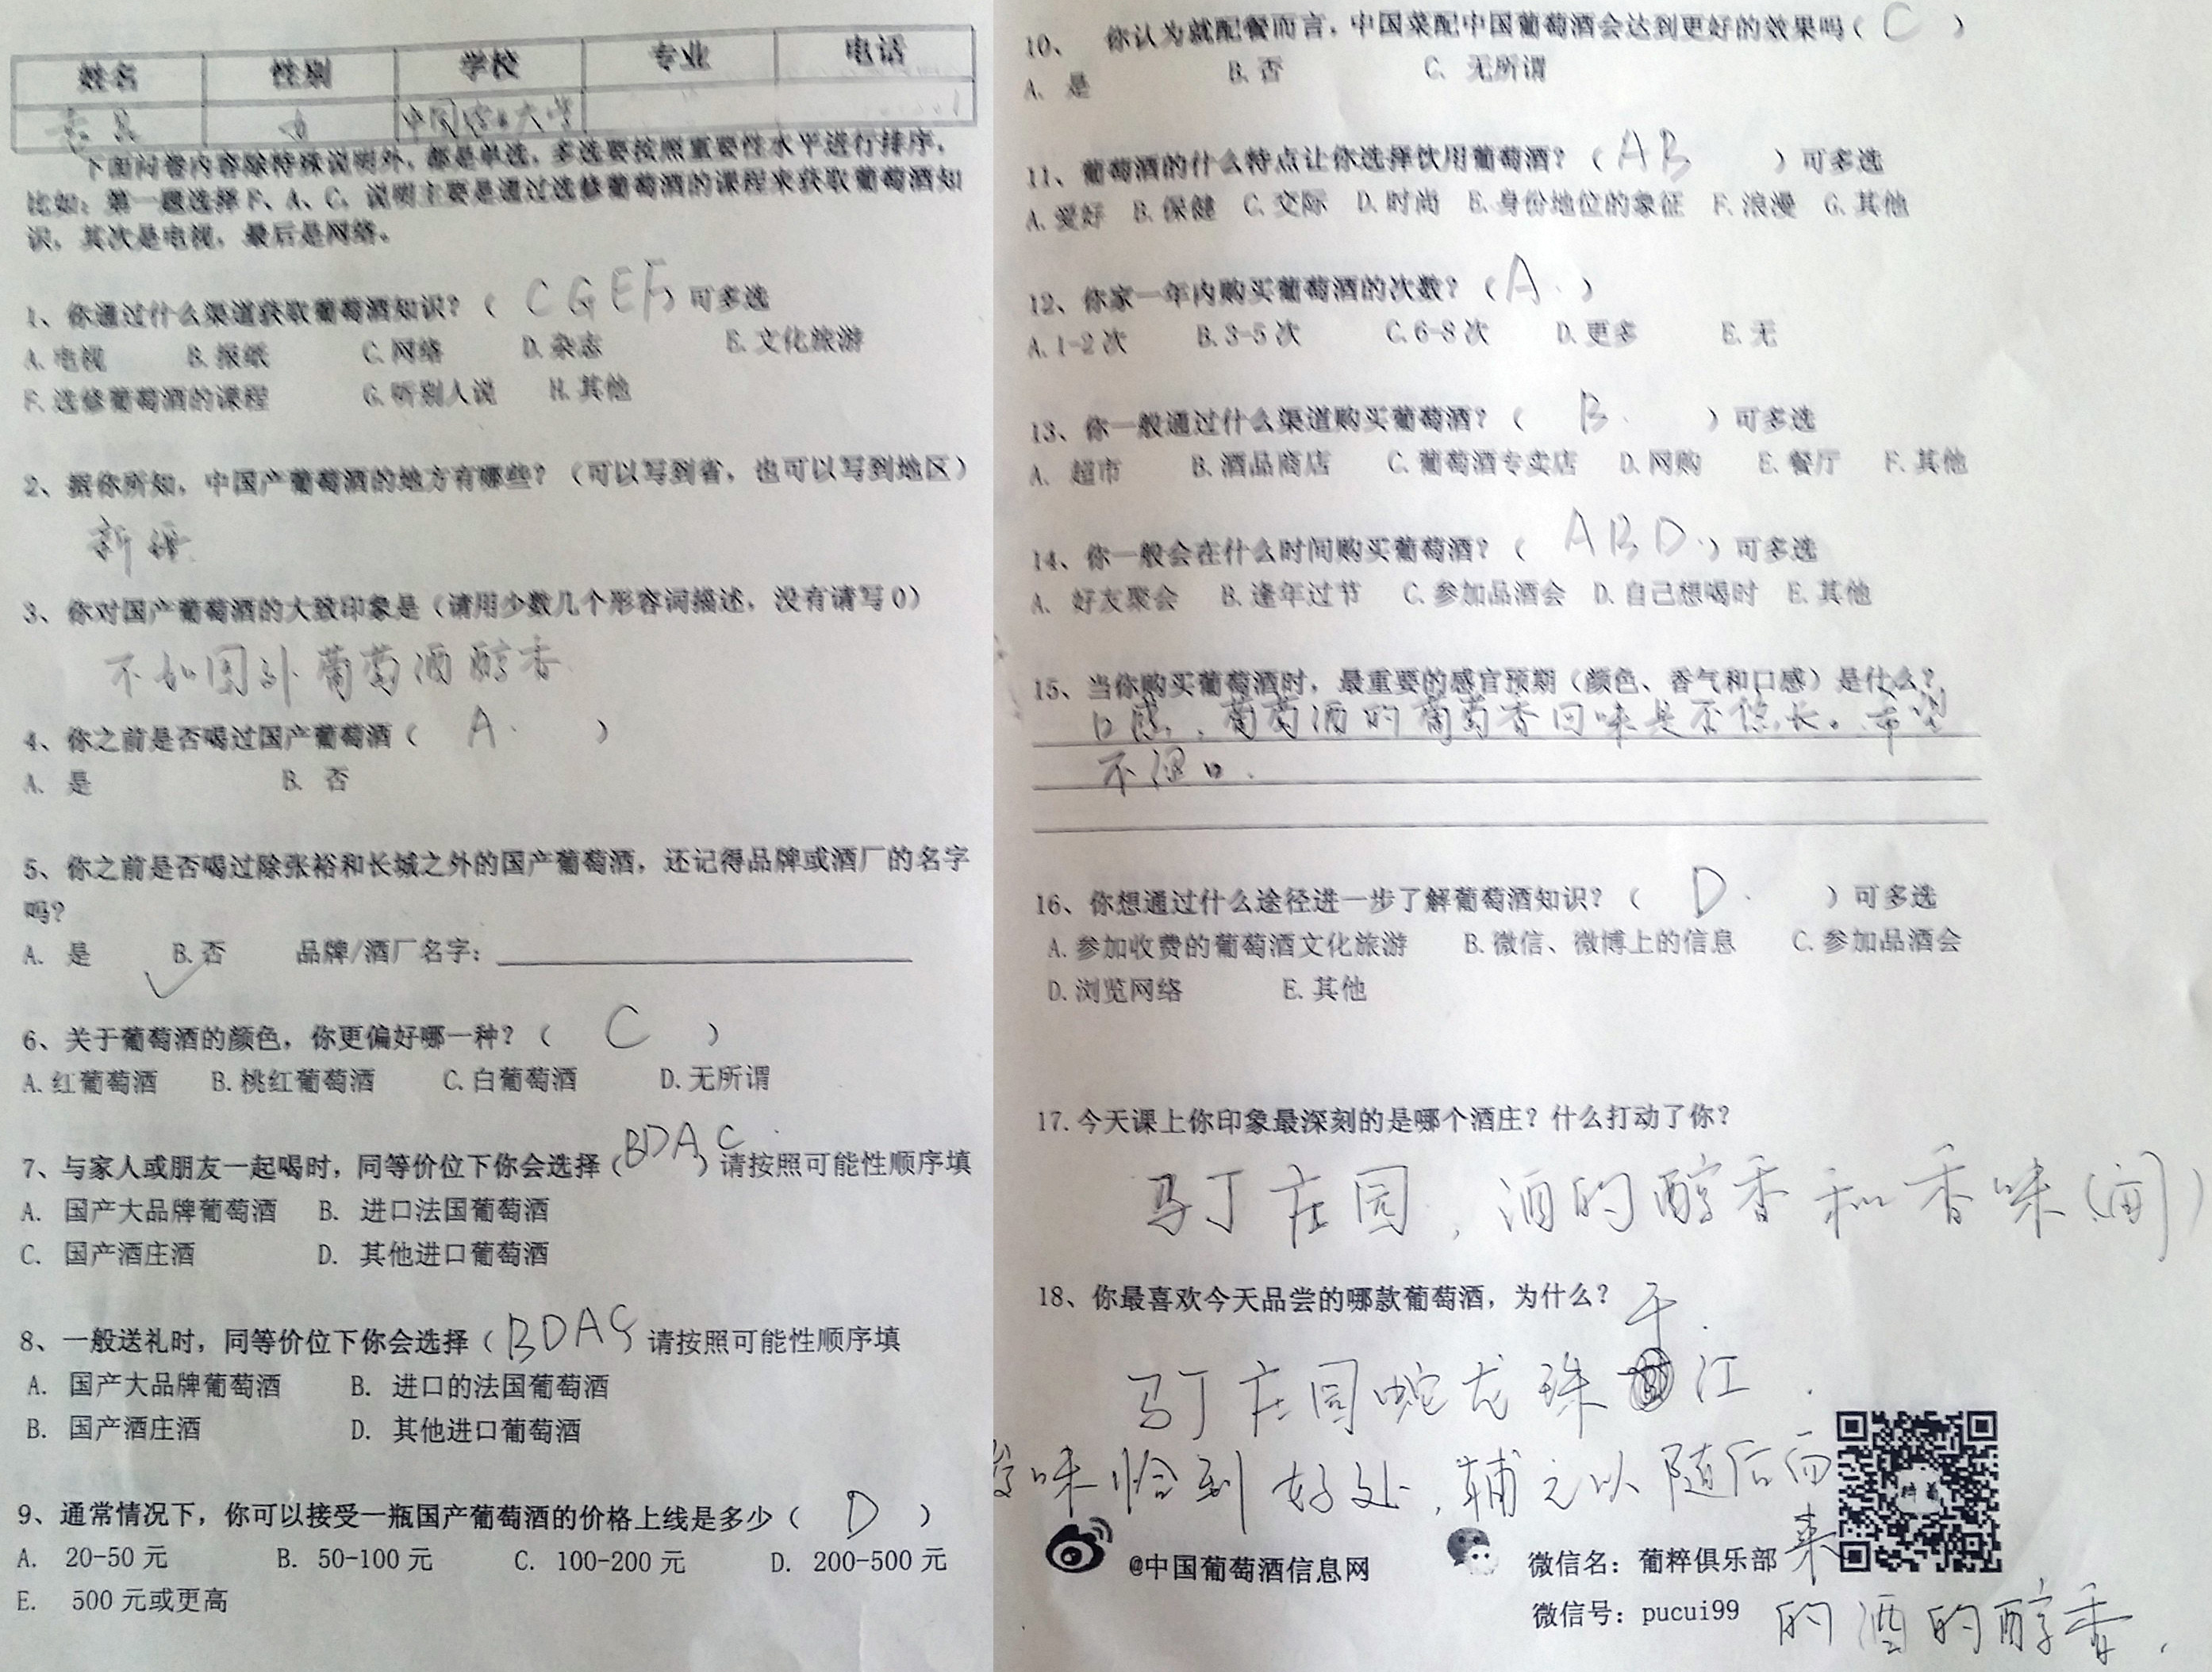 姓名 性别 学校 专业 电话
下面问卷内容除特殊说明外，都是单选，多选要按照重要性水平进行排序，
比如：第一题选择 F、A、C，说明主要是通过选修葡萄酒的课程来获取葡萄酒知
识，其次是电视，最后是网络。
1、你通过什么渠道获取葡萄酒知识？（ C G E F ）可多选
A. 电视 B. 报纸 C. 网络 D. 杂志 E. 文化旅游
F. 选修葡萄酒的课程 G. 听别人说 H. 其他
2、据你所知，中国产葡萄酒的地方有哪些？（可以写到省，也可以写到地区）
新疆
3、你对国产葡萄酒的大致印象是（请用少数几个形容词描述，没有请写 0）
不如国外葡萄酒醇香
4、你之前是否喝过国产葡萄酒（ A. ）
A. 是 B. 否
5、你之前是否喝过除张裕和长城之外的国产葡萄酒，还记得品牌或酒厂的名字
吗？
A. 是 B. 否 品牌/酒厂名字：
6、关于葡萄酒的颜色，你更偏好哪一种？（ C ）
A. 红葡萄酒 B. 桃红葡萄酒 C. 白葡萄酒 D. 无所谓
7、与家人或朋友一起喝时，同等价位下你会选择（BDAC）请按照可能性顺序填
A. 国产大品牌葡萄酒 B. 进口法国葡萄酒
C. 国产酒庄酒 D. 其他进口葡萄酒
8、一般送礼时，同等价位下你会选择（BDAC 请按照可能性顺序填
A. 国产大品牌葡萄酒 B. 进口的法国葡萄酒
B. 国产酒庄酒 D. 其他进口葡萄酒
9、通常情况下，你可以接受一瓶国产葡萄酒的价格上线是多少（ D ）
A. 20-50 元 B. 50-100 元 C. 100-200 元 D. 200-500 元
E. 500 元或更高
10、 你认为就配餐而言，中国菜配中国葡萄酒会达到更好的效果吗（ C ）
A. 是 B. 否 C. 无所谓
11、葡萄酒的什么特点让你选择饮用葡萄酒？（ AB ）可多选
A. 爱好 B. 保健 C. 交际 D. 时尚 E. 身份地位的象征 F. 浪漫 G. 其他
12、你家一年内购买葡萄酒的次数？（ A. ）
A. 1-2 次 B. 3-5 次 C. 6-8 次 D. 更多 E. 无
13、你一般通过什么渠道购买葡萄酒？（ B. ）可多选
A. 超市 B. 酒品商店 C. 葡萄酒专卖店 D. 网购 E. 餐厅 F. 其他
14、你一般会在什么时间购买葡萄酒？（ ABD. ）可多选
A. 好友聚会 B. 逢年过节 C. 参加品酒会 D. 自己想喝时 E. 其他
15、当你购买葡萄酒时，最重要的感官预期（颜色、香气和口感）是什么？
口感，葡萄酒的葡萄香回味是否悠长。希望
不涩口.
16、你想通过什么途径进一步了解葡萄酒知识？（ D. ）可多选
A. 参加收费的葡萄酒文化旅游 B. 微信、微博上的信息 C. 参加品酒会
D. 浏览网络 E. 其他
17. 今天课上你印象最深刻的是哪个酒庄？什么打动了你？
马丁庄园，酒的醇香和香味（闻）
18、你最喜欢今天品尝的哪款葡萄酒，为什么？
马丁庄园蛇龙珠干江.
味恰到好处，辅之以随后而
来
的酒的醇香.
@中国葡萄酒信息网
微信名：葡粹俱乐部
微信号：pucui99